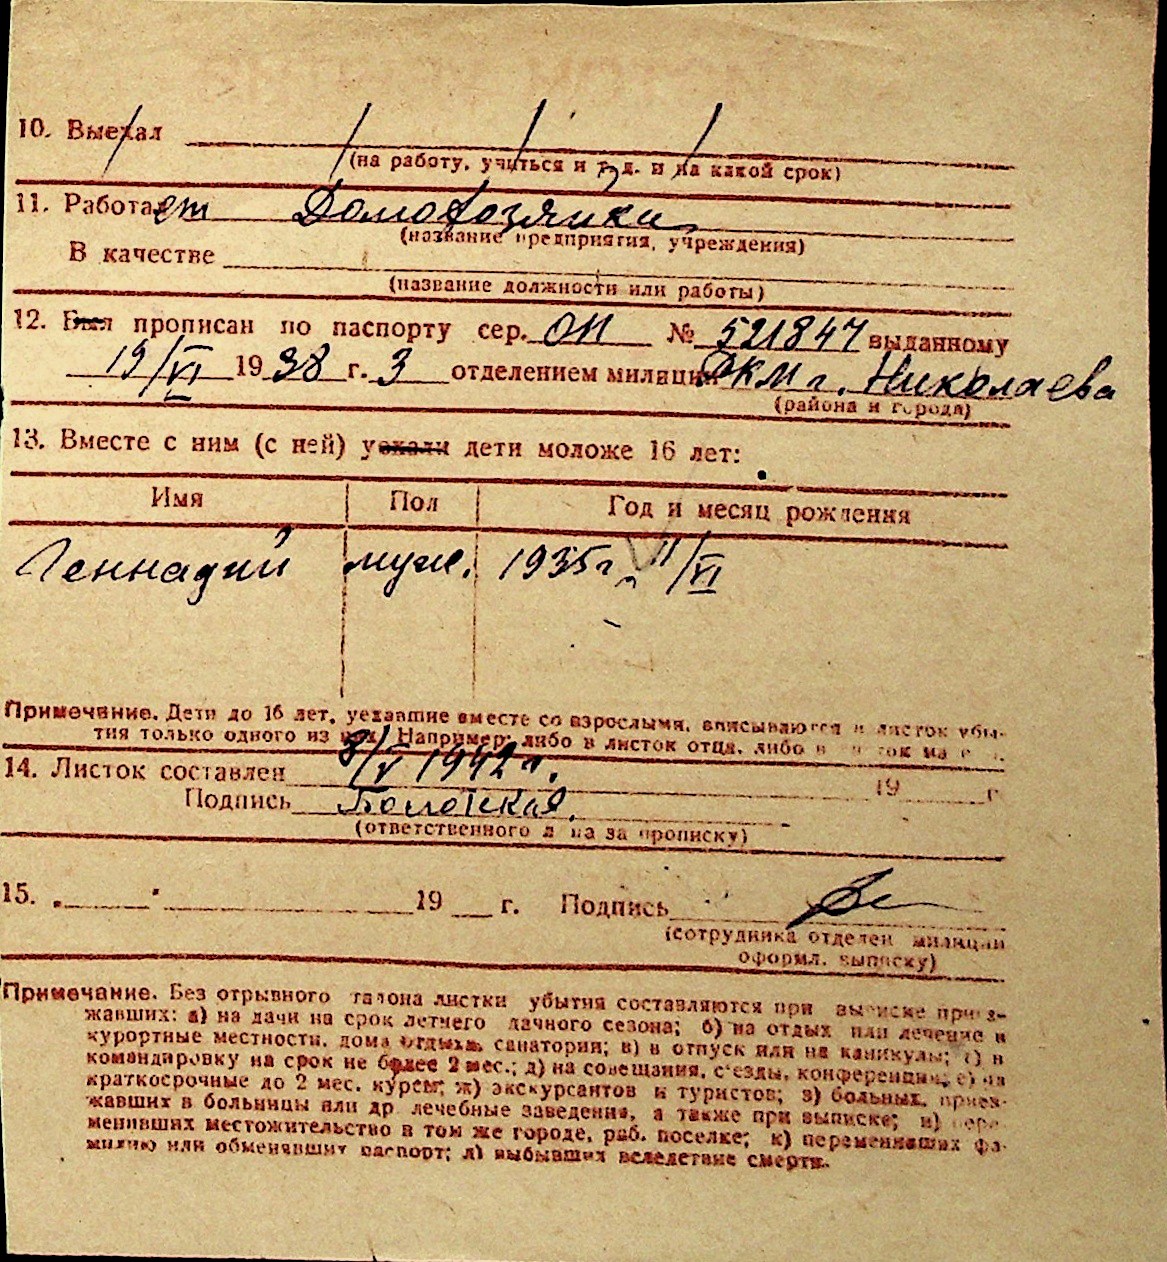 10. Выехал
(на работу, учиться и т. д. и на какой срок)
11. Работает Домохозяйки
(название предприятия, учреждения)
В качестве
(название должности или работы)
12. Был прописан по паспорту сер. ОП № 521847 выданному
19/VI 1938 г. 3 отделением милиции РКМ г. Николаева
(района и города)
13. Вместе с ним (с ней) уехали дети моложе 16 лет:
Имя Пол Год и месяц рождения
Геннадий муж. 1935 г. 11/VI
Примечание. Дети до 16 лет, уехавшие вместе со взрослыми, вписываются в листок убы-
тия только одного из них. Например: либо в листок отца, либо в листок
14. Листок составлен 8/V 1942 г. 19 г.
Подпись
(ответственного лица за прописку)
15. 19 г. Подпись
(сотрудника отделен. милиции
оформл. выписку)
Примечание. Без отрывного талона листки убытия составляются при выписке приез-
жавших: а) на дачи на срок летнего дачного сезона; б) на отдых или лечение в
курортные местности, дома отдыха, санатории; в) в отпуск или на каникулы; г) в
командировку на срок не более 2 мес.; д) на совещания, с'езды, конференции; е) на
краткосрочные до 2 мес. курсы; ж) экскурсантов и туристов; з) больных, приез-
жавших в больницы или др лечебные заведения, а также при выписке; и) пере-
менивших местожительство в том же городе, раб. поселке; к) переменивших фа-
милию или обменявших паспорт; л) выбывших вследствие смерти.